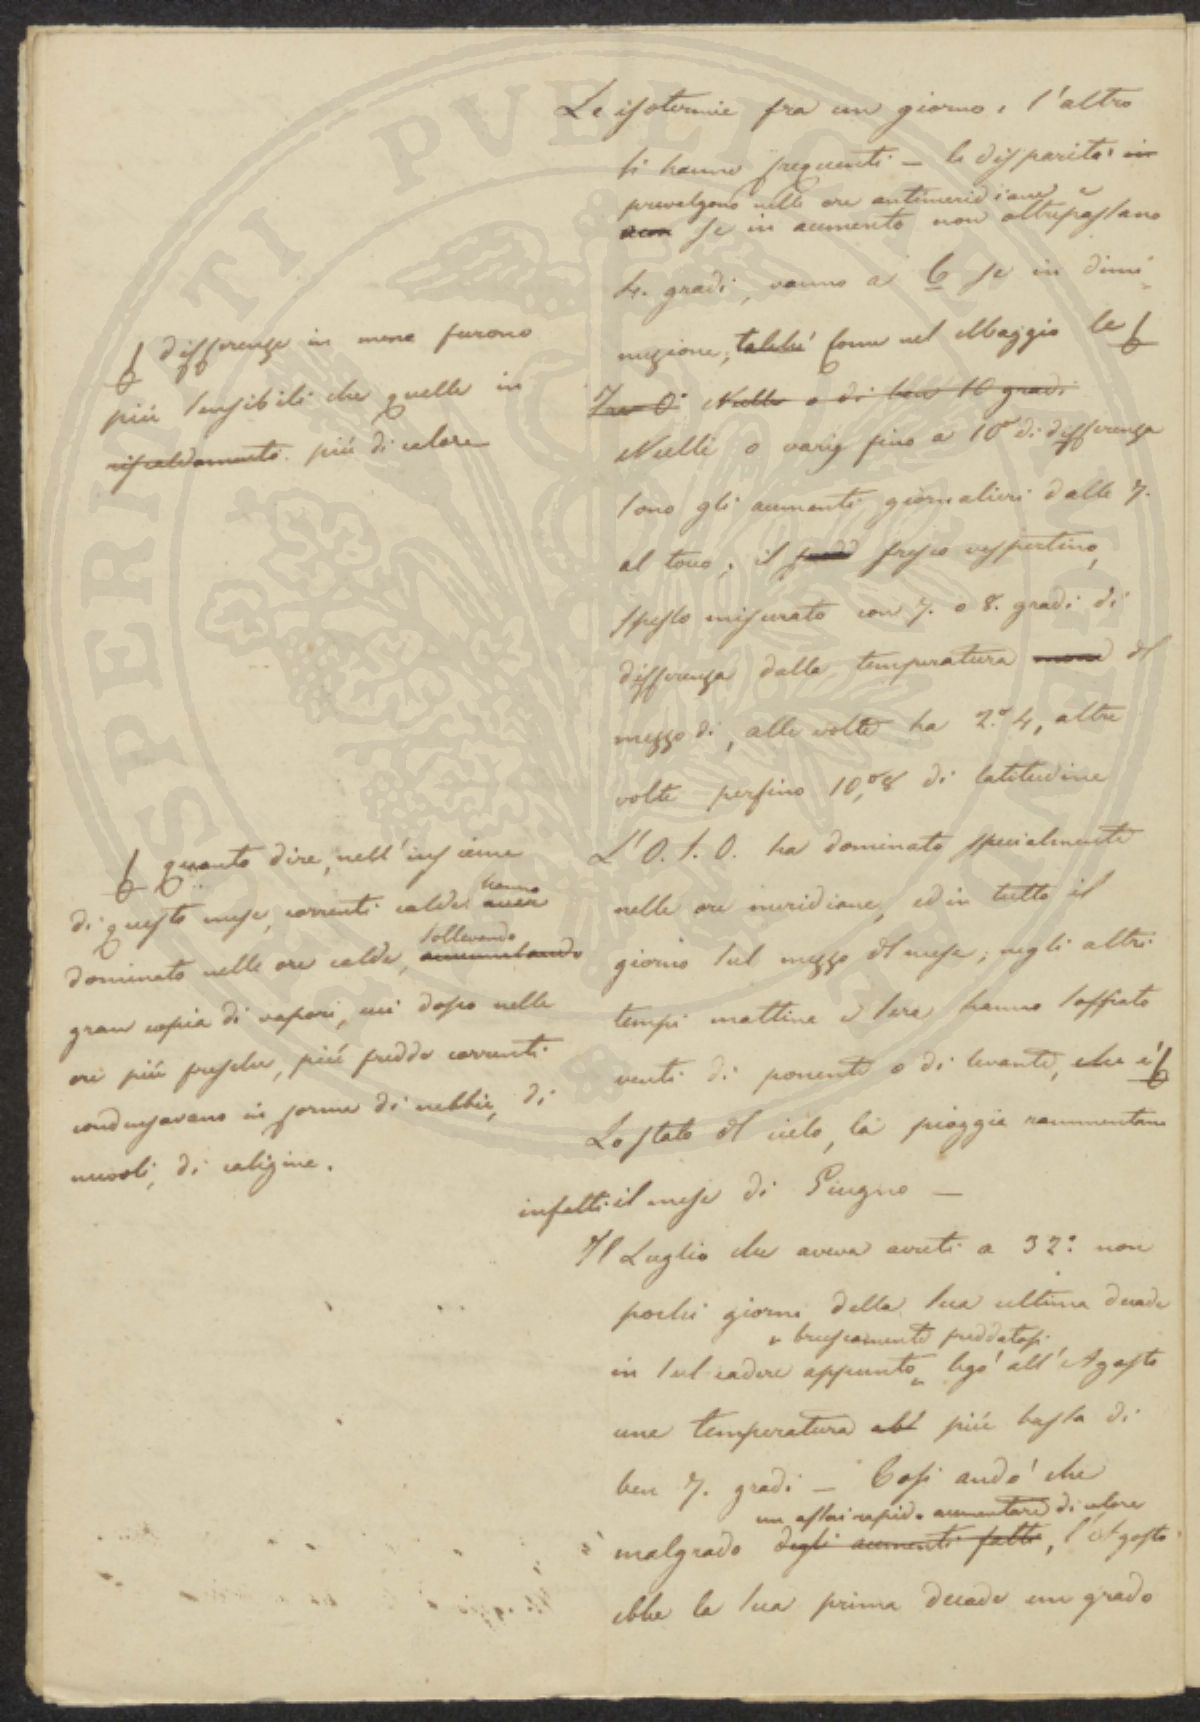 Le isotermie fra un giorno e l'altro
si hanno frequenti — le disparità in
prevalgono nelle ore antimeridiane e
non se in aumento non oltrepassano
4. gradi, vanno a 6 se in dimi
nuzione, talché Come nel Maggio le
differenze in meno furono
più sensibili che quelle in
riscaldamento. più di calore
Fra 0° Nulle o di ben 10 gradi
Nulli o varj fino a 10° di differenza
sono gli aumenti giornalieri dalle 7.
al tocco; il fredd fresco vespertino,
spesso misurato con 7. o 8. gradi di
differenza dalla temperatura del
mezzodì, alle volte ha 2.°4, altre
volte perfino 10,°8 di latitudine
L'O.S.O. ha dominato specialmente
nelle ore meridiane, ed in tutto il
giorno sul mezzo del mese; negli altri
tempi mattina e sera hanno soffiato
venti di ponente o di levante, che è
quanto dire, nell'insieme
di questo mese, correnti calde hanno
dominato nelle ore calde, sollevando accumulando
gran copia di vapori, cui dopo nelle
ore più fresche, più fredde correnti
condensavano in forma di nebbie, di
nuvoli, di caligine.
Lo stato del cielo, la pioggia rammentano
infatti il mese di Giugno —
Il Luglio che aveva avuti a 32° non
pochi giorni della sua ultima decade
e bruscamente freddatosi
in sul cadere appunto, legò all'Agosto
una temperatura più bassa di
ben 7. gradi — Così andò che
un assai rapido aumentare di calore
malgrado degli aumenti fatti, l'Agosto
ebbe la sua prima decade un grado
PVBLICA
SPERIMENTI